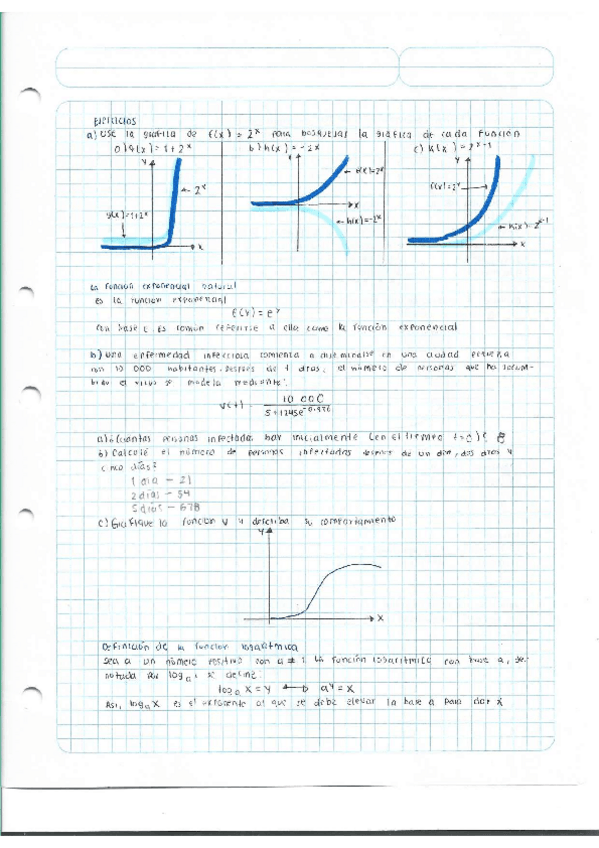 Ejercicios
a) Use la grafica de f(x) = 2^x para bosquejar la grafica de cada función
a) g(x) = 1 + 2^x b) h(x) = -2^x c) k(x) = 2^x-1
y y y
← h(x)=2^x
← 2^x f(x)=2^x →
g(x)=1+2^x ← h(x)=-2^x ← h(x)=2^x-1
x x x
La función exponencial natural
es la función exponencial
f(x) = e^x
con base e. Es común referirse a ella como la función exponencial
h) una enfermedad infecciosa comienza a diseminarse en una ciudad pequeña
con 10 000 habitantes. después de t días, el número de personas que ha sucum-
bido al virus se modela mediante:
v(t) = 10 000
5 + 1245e^-0.97t
a) ¿Cuantas personas infectadas hay inicialmente (en el tiempo t=0)? 8
b) Calculé el número de personas infectadas despues de un día, dos días y
cinco días?
1 día - 21
2 días - 54
5 días - 678
c) Grafique la función v y describa su comportamiento
y
x
Definición de la función logarítmica
Sea a un número positivo con a ≠ 1. La función logarítmica con base a, de-
notada por log a, se define:
log a X = y ⟷ a^y = x
Así, log a X es el exponente al que se debe elevar la base a para dar x